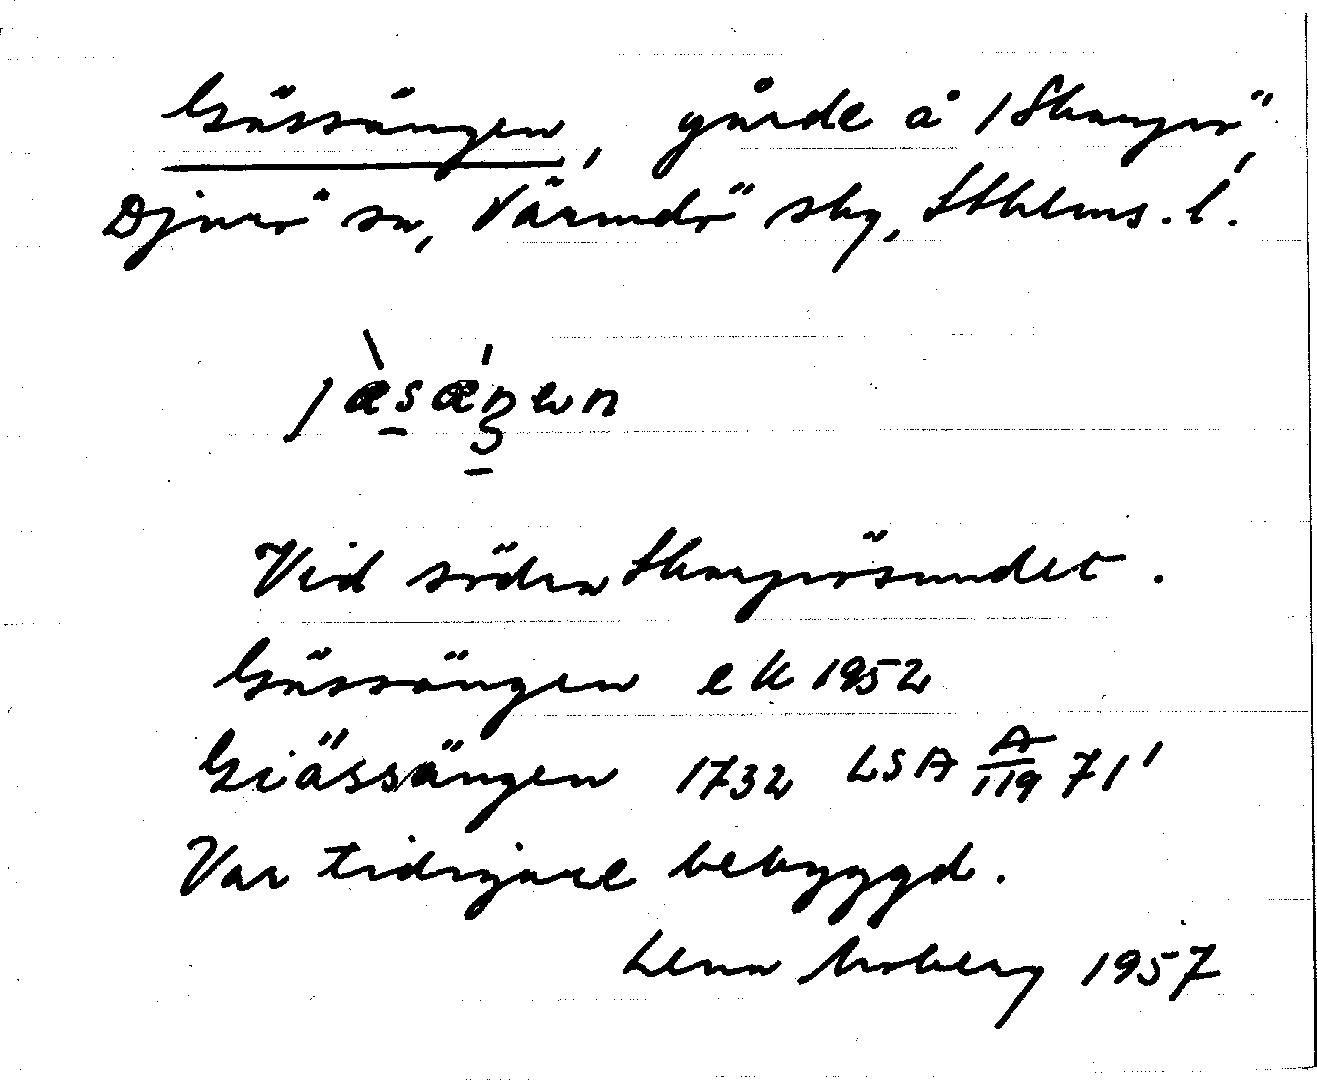 Gässängen, gärde å /Skarprö,
Djurö sn, Värmdö skg, Sthlms. l.
jæ̀sǽŋen
Vid södra Skarpösundet.
Gässängen ek 1952
Giässängen 1732 LSA A/119 71'
Var tidigare bebyggd.
Lena Moberg 1957